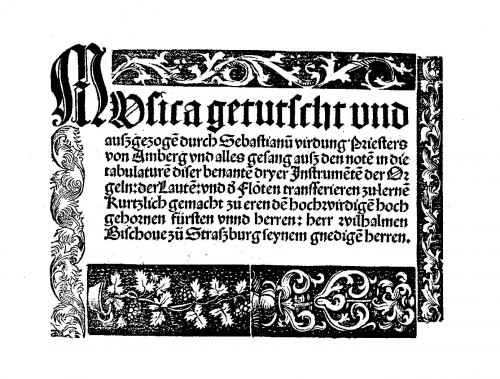 Musica getutscht und
außgezogē durch Sebastianū virdung Priesters
von Amberg vnd alles gesang auß den notē in die
tabulaturē diser benantē dryer Instrumētē der Or
geln: der Lautē: vnd d Flöten transferieren zu lernē
Kurtzlich gemacht zu eren dē hochwirdigē hoch
gebornen fürsten vnnd herren: herr wilhalmen
Bischoue zů Straßburg seynem gnedigē herren.